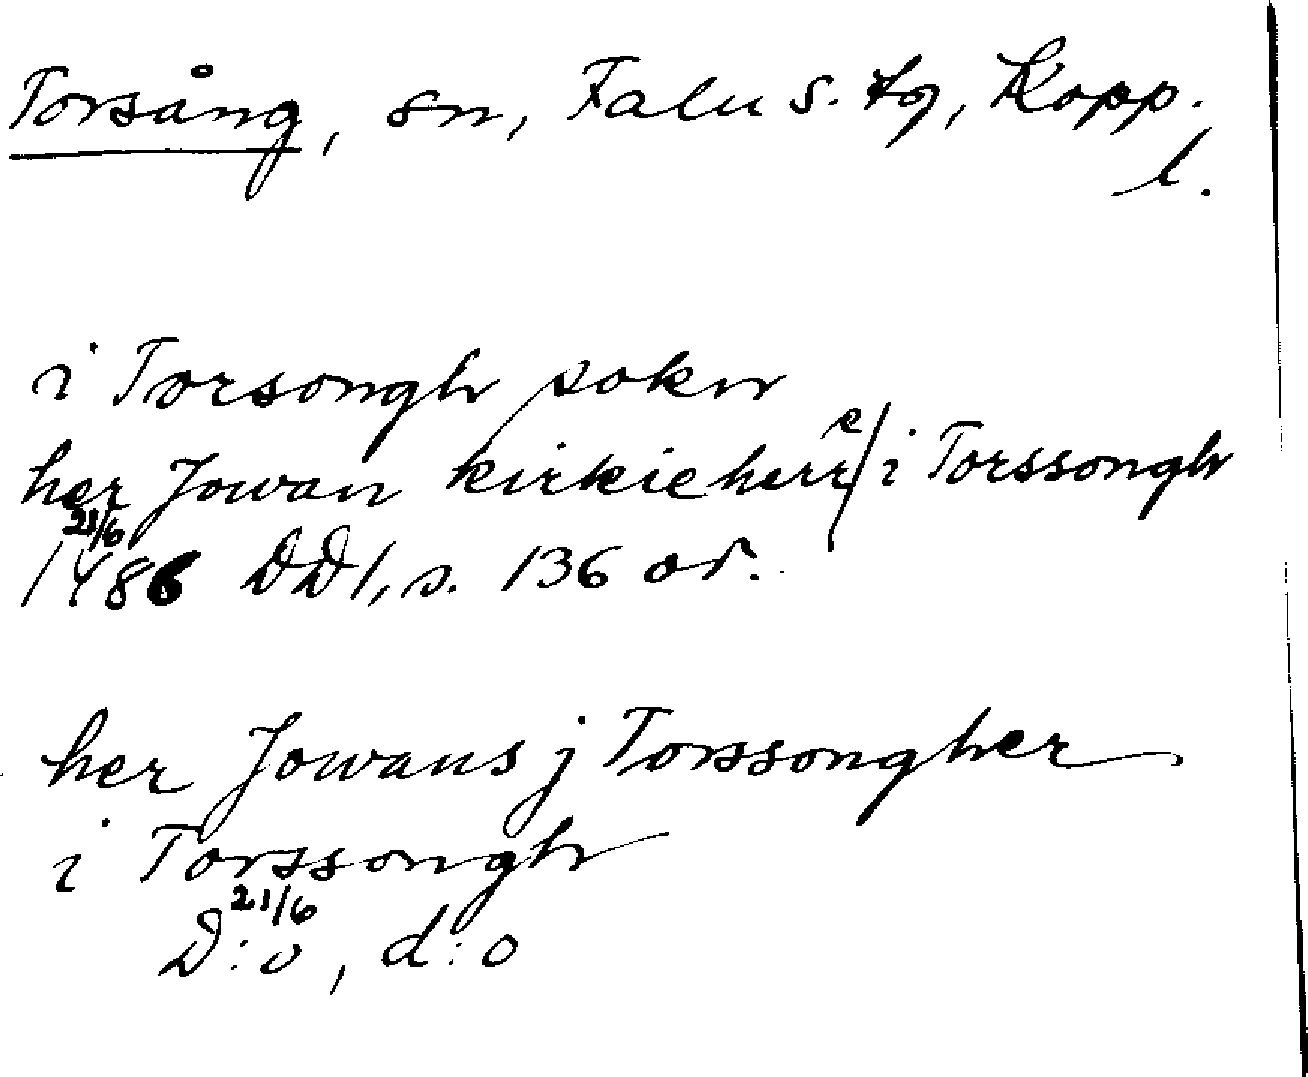 Torsång, sn, Falu s. tg, Kopp.
l.
i Torsongh sokn
her Jowan kirkieherre i Torssongh
21/6
1486 DD1, s. 136 or.
her Jowans j Torssongher
i Torssongh
21/6
D:o, d:o